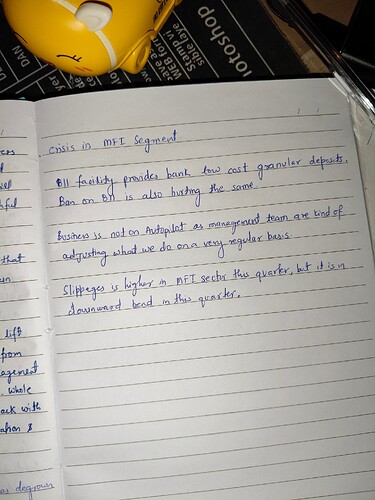 otoshop
Stampvi
sible laye
Save a
WEB for
DAN
crisis in MFI Segment
BII facility provides bank low cost granular deposits.
Ban on BII is also hurting the same.
Business is not on Autopilot as management team are kind of
adjusting what we do on a very regular basis.
Slippages is higher in MFI sector this quarter, but it is in
downward bend in this quarter.
that
lift
from
agement
whole
ack with
ation &
as degrown